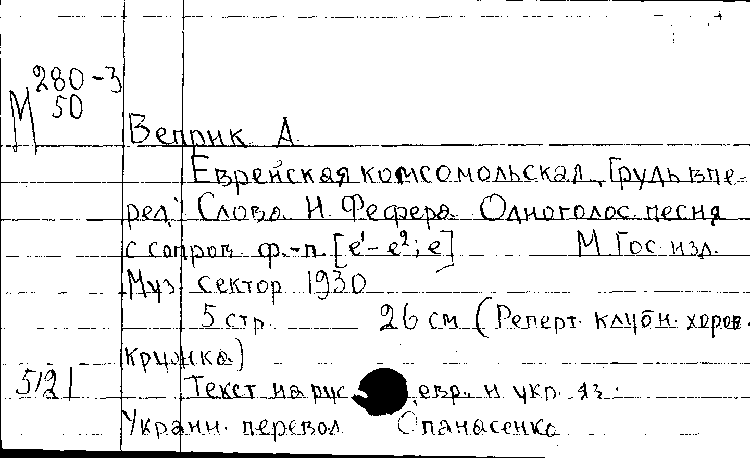 М 280-3
50
Веприк А.
Еврейская комсомольская "Грудь впе-
ред" Слова И. Фефера Одноголос. песня
с сопров. ф.-п. [e¹-e²; e] М. Гос. изд.
Муз. сектор 1930
5 стр. 26 см (Реперт. клубн. хоров.
кружка)
5121 Текст на рус евр. и укр. яз.
Украин. перевод Опанасенко